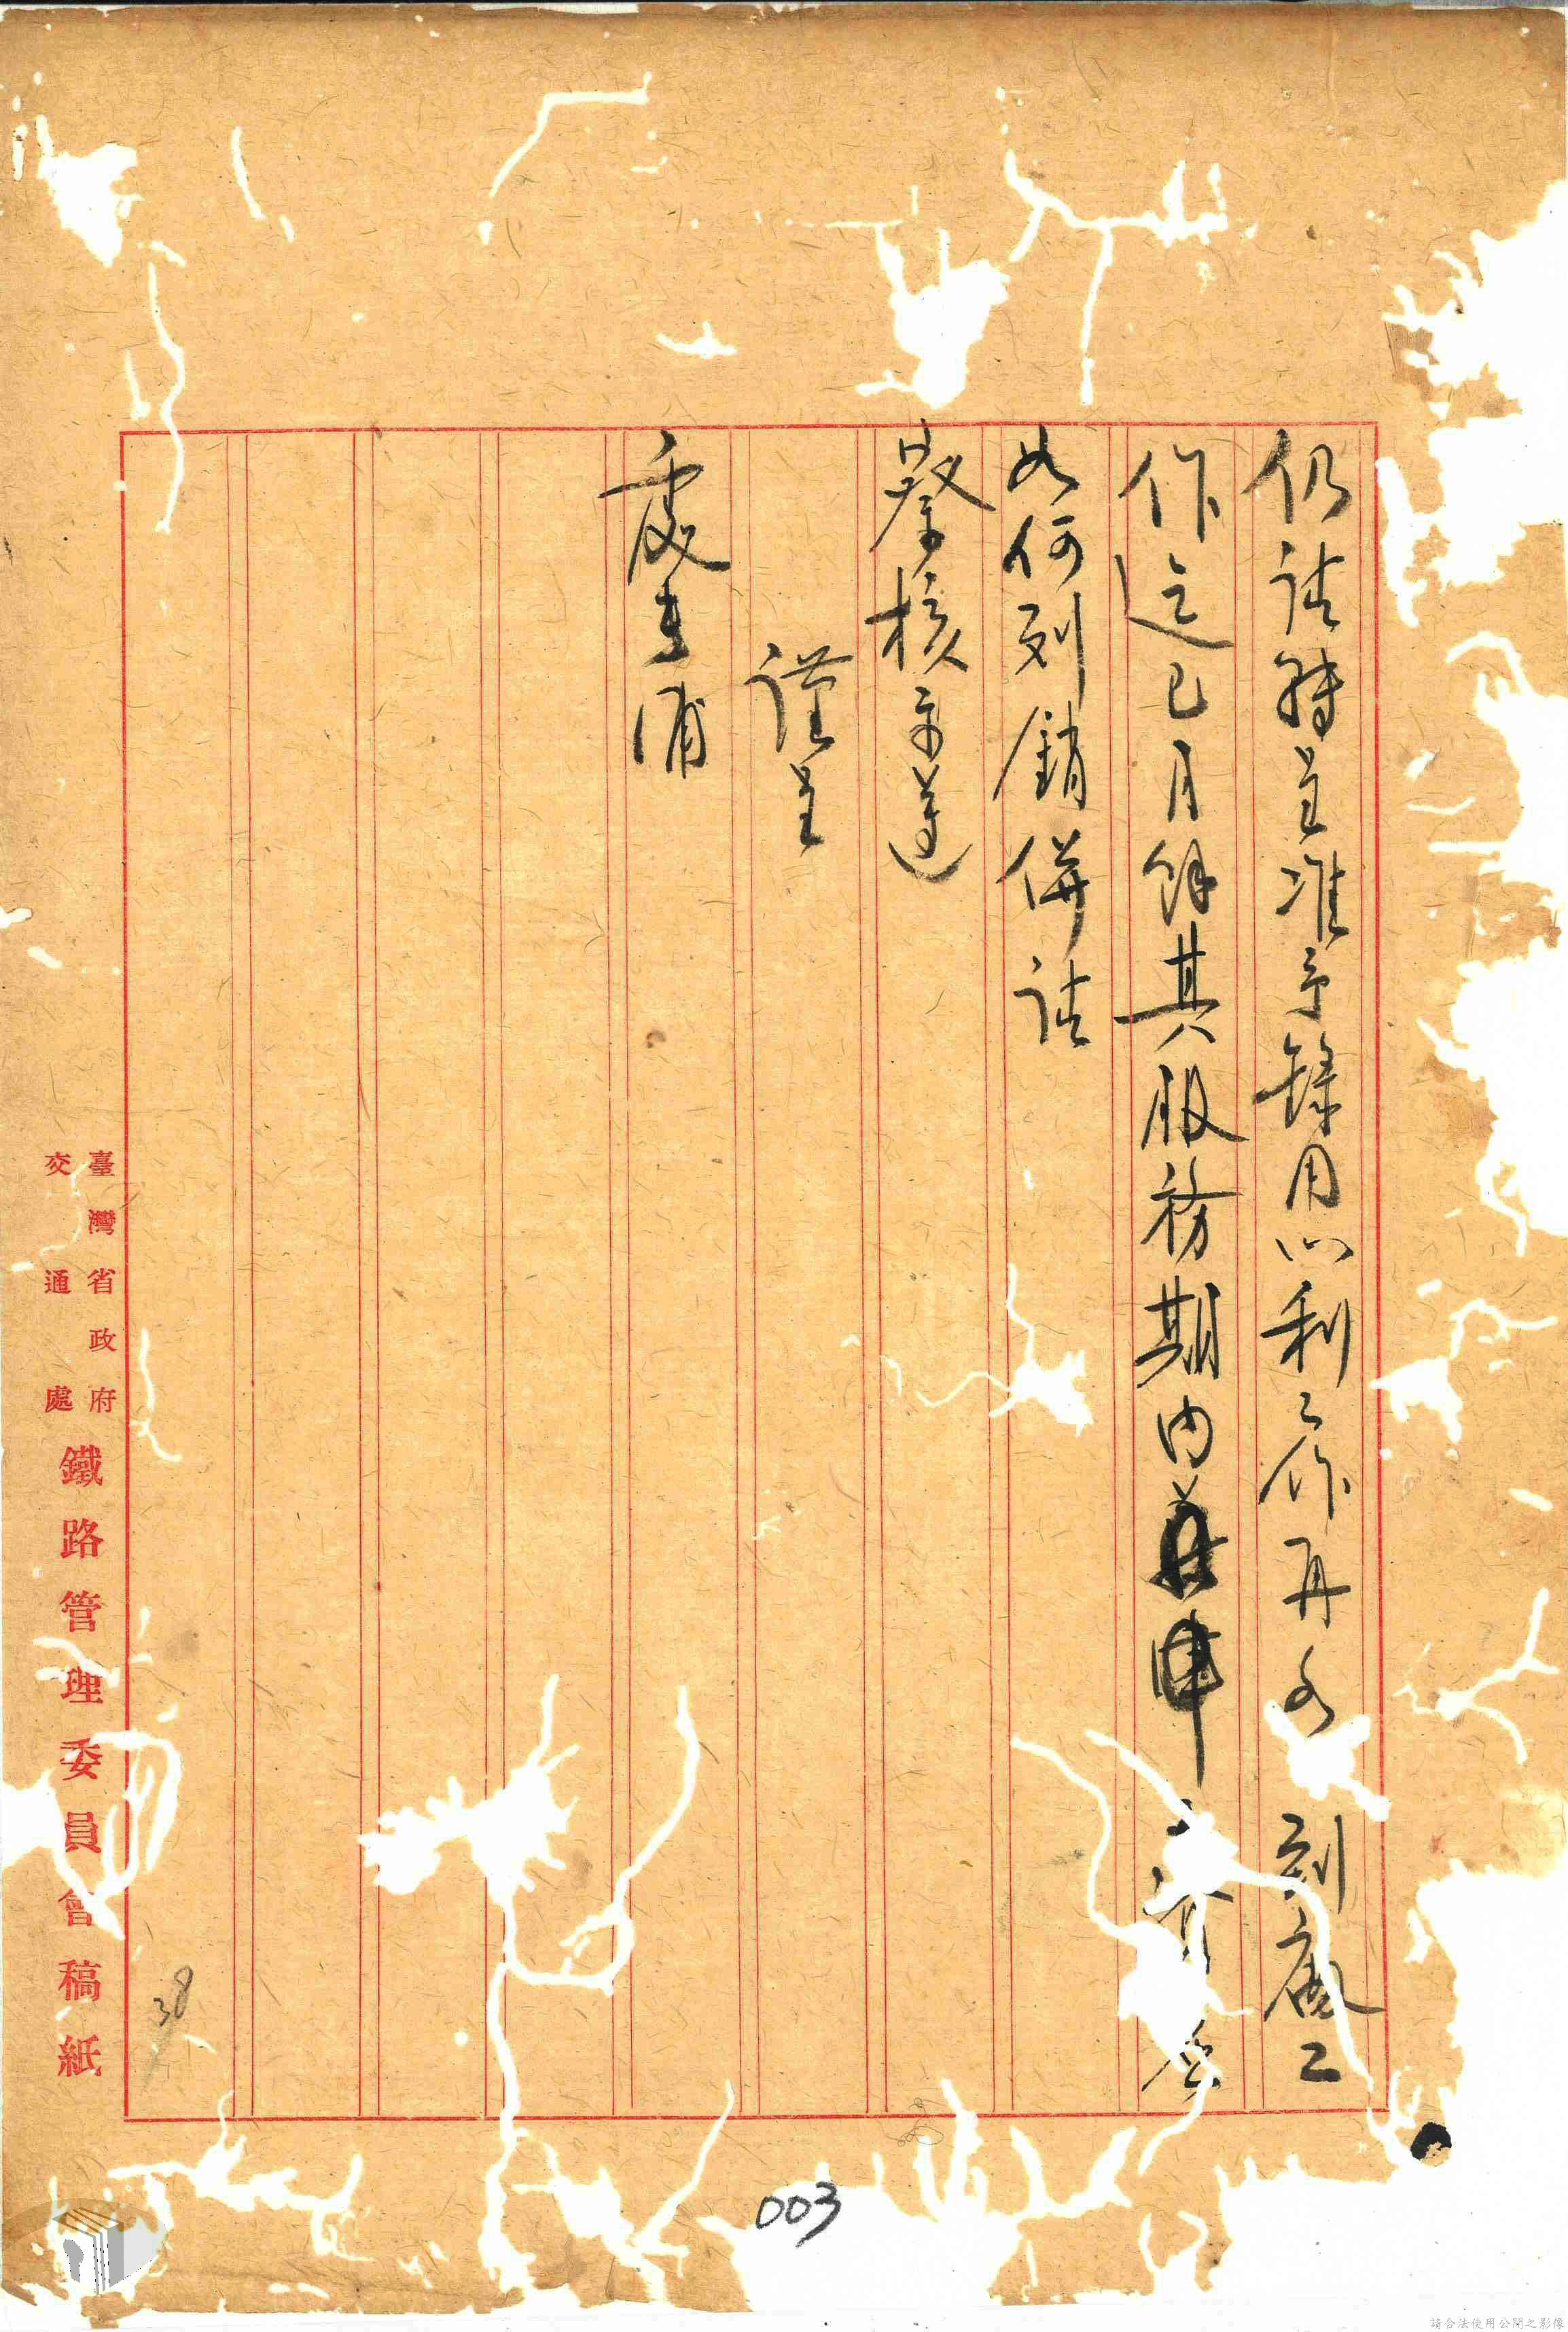 仍請轉呈准予錄用以利工作再文 到廠工
作迄已月餘其服務期內 薪
如何列銷併請
詧核示遵
謹呈
處長浦
臺灣省政府
交通處
鐵路管理委員會稿紙
38
003
請合法使用公開之影像